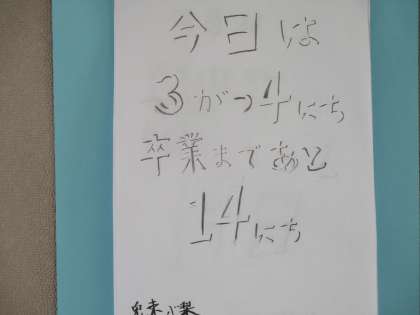 今日は
3がつ4にち
卒業まであと
14にち